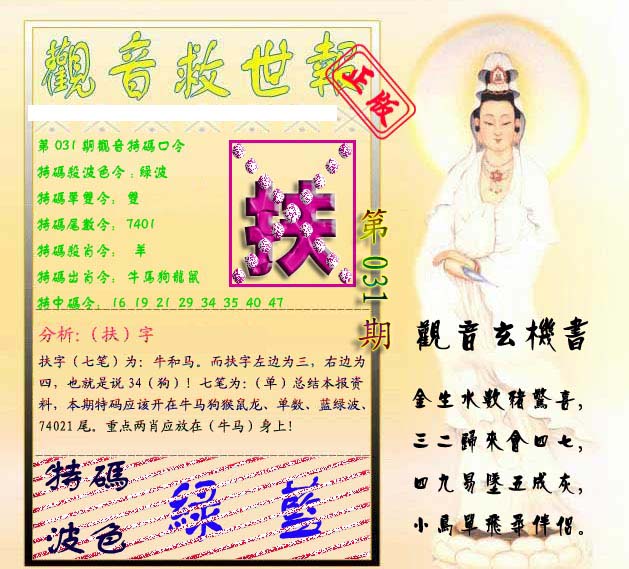 觀音救世報
正版
第031期觀音特碼口令
特碼殺波色令:綠波
特碼單雙令: 雙
特碼尾數令: 7401
特碼殺肖令: 羊
特碼出肖令: 牛馬狗龍鼠
特中碼令: 16 19 21 29 34 35 40 47
扶
第031期
分析:（扶）字
扶字（七笔）为：牛和马。而扶字左边为三，右边为
四，也就是说34（狗）！七笔为:（单）总结本报资
料，本期特码应该开在牛马狗猴鼠龙、单数、蓝绿波、
74021尾。重点两肖应放在（牛马）身上！
特碼
波色
綠 藍
觀音玄機書
金生水數豬驚喜，
三二歸來會四七，
四九易墜五成灰，
小鳥單飛尋伴侶。